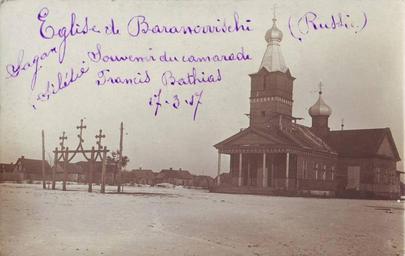 Eglise de Baranowischi (Russie)
Sagan (Silésie)
Souvenir du camarade
Francis Bathias
17.3.17